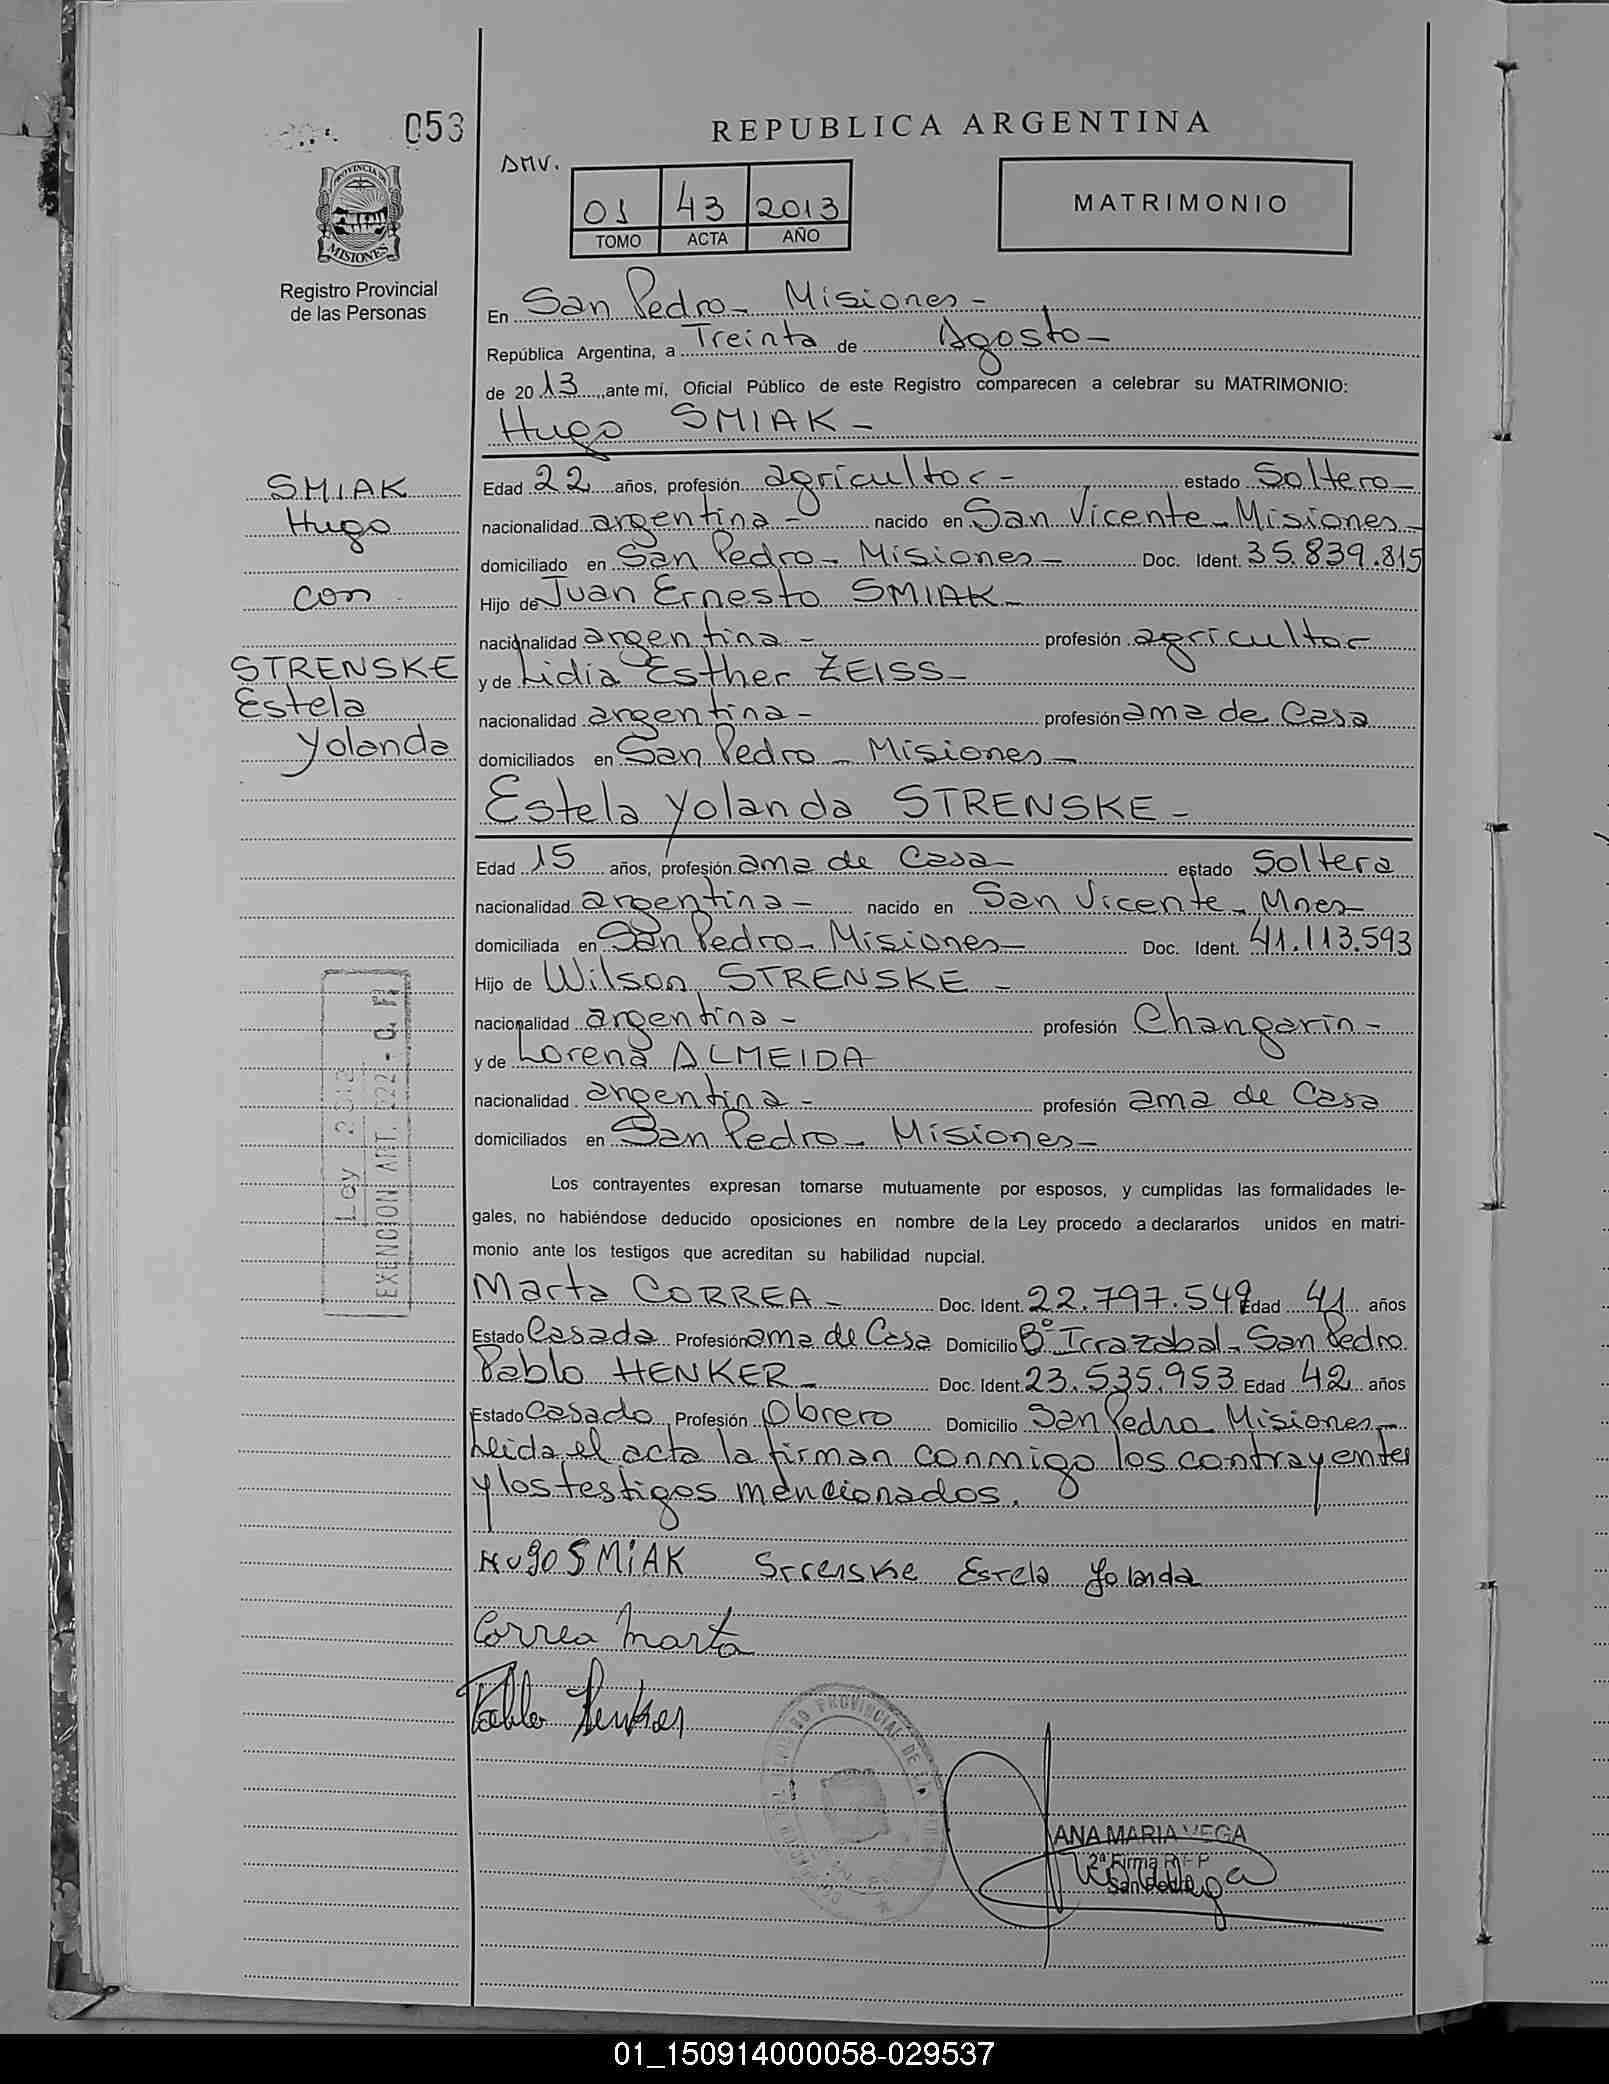 053
REPUBLICA ARGENTINA
AMV.
01 43 2013
TOMO ACTA AÑO
MATRIMONIO
PROVINCIA DE
MISIONES
Registro Provincial
de las Personas
En San Pedro - Misiones -
República Argentina, a Treinta de Agosto -
de 20 13 ,ante mí, Oficial Público de este Registro comparecen a celebrar su MATRIMONIO:
Hugo SMIAK -
SMIAK
Hugo
con
STRENSKE
Estela
Yolanda
Edad 22 años, profesión agricultor - estado Soltero -
nacionalidad argentina - nacido en San Vicente - Misiones -
domiciliado en San Pedro - Misiones - Doc. Ident. 35.839.815
Hijo de Juan Ernesto SMIAK -
nacionalidad argentina - profesión agricultor
y de Lidia Esther ZEISS -
nacionalidad argentina - profesión ama de Casa
domiciliados en San Pedro - Misiones -
Estela Yolanda STRENSKE -
Edad 15 años, profesión ama de Casa - estado Soltera
nacionalidad argentina - nacido en San Vicente - Mnes -
domiciliada en San Pedro - Misiones - Doc. Ident. 41.113.593
Hijo de Wilson STRENSKE -
nacionalidad argentina - profesión Changarin -
y de Lorena ALMEIDA
nacionalidad argentina - profesión ama de Casa
domiciliados en San Pedro - Misiones -
Ley
EXENCION ART. 222 -
Los contrayentes expresan tomarse mutuamente por esposos, y cumplidas las formalidades le-
gales, no habiéndose deducido oposiciones en nombre de la Ley procedo a declararlos unidos en matri-
monio ante los testigos que acreditan su habilidad nupcial.
Marta CORREA - Doc. Ident. 22.797.549 Edad 41 años
Estado Casada Profesión ama de Casa Domicilio B° Irrazabal - San Pedro
Pablo HENKER - Doc. Ident. 23.535.953 Edad 42 años
Estado Casado Profesión Obrero Domicilio San Pedro Misiones -
Leida el acta la firman conmigo los contrayentes
y los testigos mencionados.
HugO SMiAK Strenske Estela Yolanda
Correa Marta
Pablo Henker
REGISTRO PROVINCIAL DE LAS
ANA MARIA VEGA
2ª Firma R P P
San Pedro
01_150914000058-029537